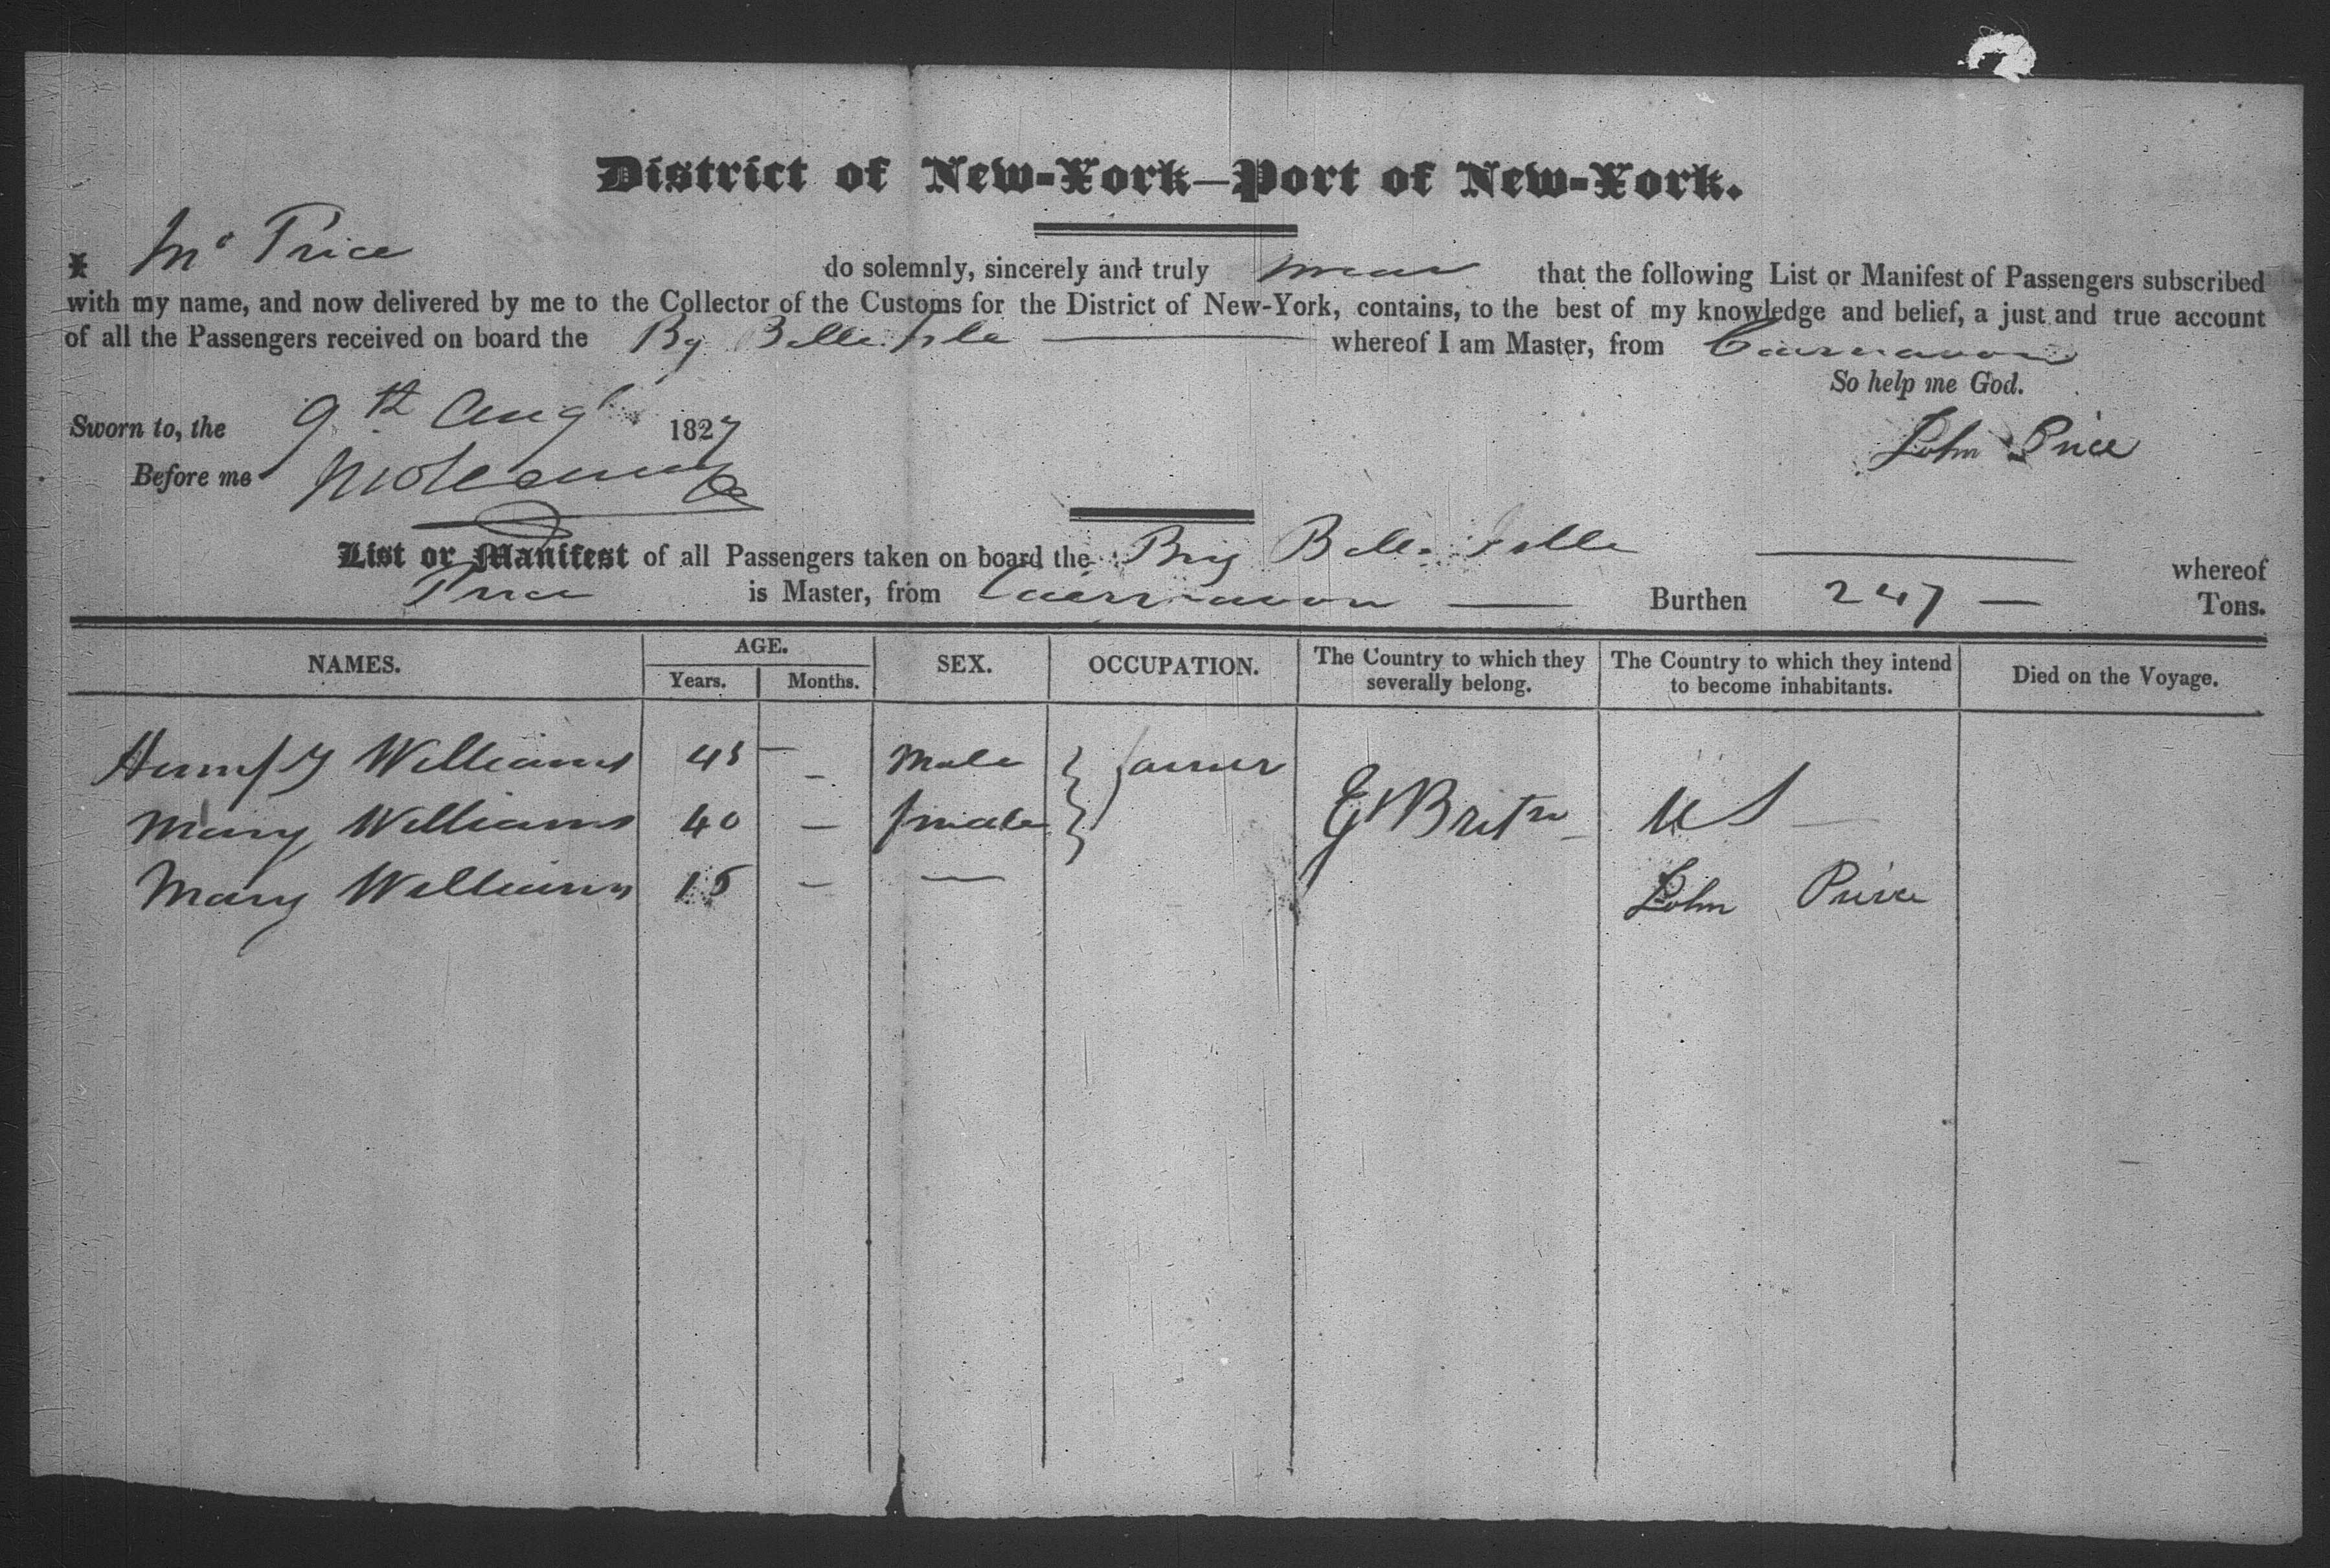 District of New-York—Port of New-York.
I Mr Price do solemnly, sincerely and truly swear that the following List or Manifest of Passengers subscribed
with my name, and now delivered by me to the Collector of the Customs for the District of New-York, contains, to the best of my knowledge and belief, a just and true account
of all the Passengers received on board the Bg Belle Isle whereof I am Master, from Caernavon
So help me God.
Sworn to, the 9th Augt 1827
John Price
Before me
List or Manifest of all Passengers taken on board the Brig Belle Islle whereof
Price is Master, from Caernavon — Burthen 247 — Tons.
NAMES. AGE. Years. Months. SEX. OCCUPATION. The Country to which they severally belong. The Country to which they intend to become inhabitants. Died on the Voyage.
Humpy Williams 45 — Male } farmer
Mary Williams 40 — female } Gt Britn US —
Mary Williams 15 — —
John Price